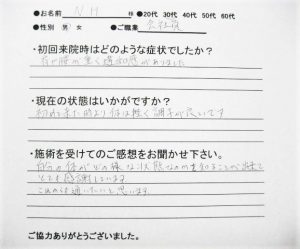 ●お名前 N H 様 ●20代 30代 40代 50代 60代
●性別 男 女 ●ご職業 会社員
・初回来院時はどのような症状でしたか？
首や腰が重く違和感がありました
・現在の状態はいかがですか？
初めて来た時より体は軽く調子が良いです
・施術を受けてのご感想をお聞かせ下さい。
自分の体がどの様な状態なのかを知ることが出来て
とても感謝しています。
これからも通いたいと思います。
ご協力ありがとうございました。